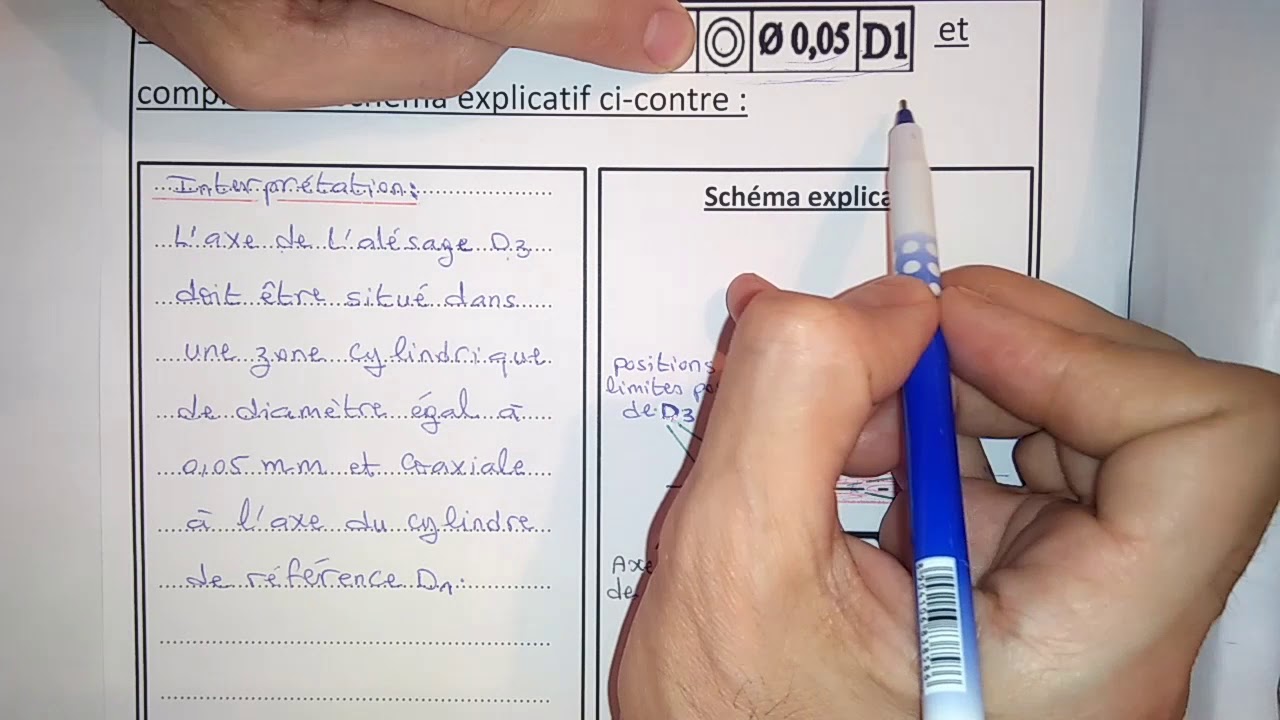 ◎ Ø 0,05 D1 et
schéma explicatif ci-contre :
Interprétation:
L'axe de l'alésage D3
doit être situé dans
une zone cylindrique
de diamètre égal à
0,05 mm et coaxiale
à l'axe du cylindre
de référence D1.
Schéma
positions
limites
de D3
de